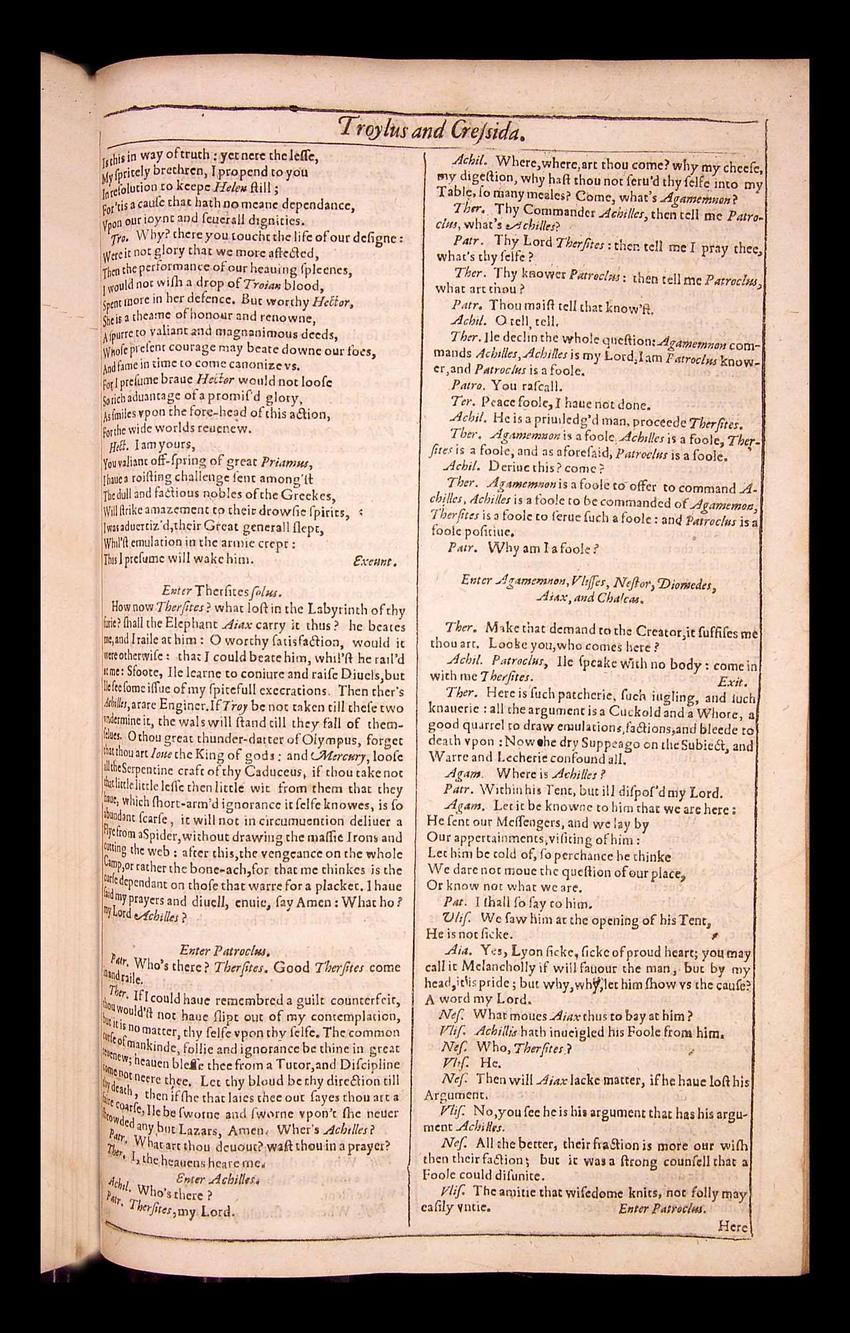 Troylus and Cressida.
Is this in way of truth : yet nere the lesse,
My spritely brethren, I propend to you
In resolution to keepe Helen still ;
For 'tis a cause that hath no meane dependance,
Vpon our ioynt and seuerall dignities.
Tro. Why? there you toucht the life of our designe :
Were it not glory that we more affected,
Then the performance of our heauing spleenes,
I would not wish a drop of Troian blood,
Spent more in her defence. But worthy Hector,
She is a theame of honour and renowne,
A spurre to valiant and magnanimous deeds,
Whose present courage may beate downe our foes,
And fame in time to come canonize vs.
For I presume braue Hector would not loose
So rich aduantage of a promis'd glory,
As smiles vpon the fore-head of this action,
For the wide worlds reuenew.
Hect. I am yours,
You valiant off-spring of great Priamus,
I haue a roisting challenge sent among'st
The dull and factious nobles of the Greekes,
Will strike amazement to their drowsie spirits,
I was aduertiz'd, their Great generall slept,
Whil'st emulation in the armie crept :
This I presume will wake him. Exeunt.
Enter Thersites solus.
How now Thersites ? what lost in the Labyrinth of thy
furie? shall the Elephant Aiax carry it thus ? he beates
me, and I raile at him : O worthy satisfaction, would it
were otherwise : that I could beate him, whil'st he rail'd
at me : Sfoote, Ile learne to coniure and raise Diuels, but
Ile see some issue of my spitefull execrations. Then ther's
Achilles, a rare Enginer. If Troy be not taken till these two
vndermine it, the wals will stand till they fall of them-
selues. O thou great thunder-darter of Olympus, forget
that thou art Ioue the King of gods : and Mercury, loose
all the Serpentine craft of thy Caduceus, if thou take not
that little little lesse then little wit from them that they
haue, which short-arm'd ignorance it selfe knowes, is so
abundant scarse, it will not in circumuention deliuer a
Flye from a Spider, without drawing the massie Irons and
cutting the web : after this, the vengeance on the whole
Camp, or rather the bone-ach, for that me thinkes is the
curse dependant on those that warre for a placket. I haue
said my prayers and diuell, enuie, say Amen : What ho ?
my Lord Achilles ?
Enter Patroclus.
Patr. Who's there ? Thersites. Good Thersites come
in and raile.
Ther. If I could haue remembred a guilt counterfeit,
thou would'st not haue slipt out of my contemplation,
but it is no matter, thy selfe vpon thy selfe. The common
curse of mankinde, follie and ignorance be thine in great
reuenew; heauen blesse thee from a Tutor, and Discipline
come not neere thee. Let thy bloud be thy direction till
thy death, then if she that laies thee out sayes thou art a
faire coarse, Ile be sworne and sworne vpon't she neuer
shrowded any but Lazars, Amen. Wher's Achilles ?
Patr. What art thou deuout? wast thou in a prayer?
Ther. I, the heauens heare me.
Enter Achilles.
Achil. Who's there ?
Patr. Thersites, my Lord.
Achil. Where, where, art thou come? why my cheese,
my digestion, why hast thou not seru'd thy selfe into my
Table, so many meales? Come, what's Agamemnon ?
Ther. Thy Commander Achilles, then tell me Patro-
clus, what's Achilles?
Patr. Thy Lord Thersites : then tell me I pray thee,
what's thy selfe ?
Ther. Thy knower Patroclus : then tell me Patroclus,
what art thou ?
Patr. Thou maist tell that know'st.
Achil. O tell, tell.
Ther. Ile declin the whole question: Agamemnon com-
mands Achilles, Achilles is my Lord, I am Patroclus know-
er, and Patroclus is a foole.
Patro. You rascall.
Ter. Peace foole, I haue not done.
Achil. He is a priuiledg'd man, proceede Thersites.
Ther. Agamemnon is a foole, Achilles is a foole, Ther-
sites is a foole, and as aforesaid, Patroclus is a foole.
Achil. Deriue this ? come ?
Ther. Agamemnon is a foole to offer to command A-
chilles, Achilles is a foole to be commanded of Agamemon,
Thersites is a foole to serue such a foole : and Patroclus is a
foole positiue.
Patr. Why am I a foole ?
Enter Agamemnon, Vlisses, Nestor, Diomedes,
Aiax, and Chalcas.
Ther. Make that demand to the Creator, it suffises me
thou art. Looke you, who comes here ?
Achil. Patroclus, Ile speake with no body : come in
with me Thersites. Exit.
Ther. Here is such patcherie, such iugling, and such
knauerie : all the argument is a Cuckold and a Whore, a
good quarrel to draw emulations, factions, and bleede to
death vpon : Now the dry Suppeago on the Subiect, and
Warre and Lecherie confound all.
Agam. Where is Achilles ?
Patr. Within his Tent, but ill dispos'd my Lord.
Agam. Let it be knowne to him that we are here :
He sent our Messengers, and we lay by
Our appertainments, visiting of him :
Let him be told of, so perchance he thinke
We dare not moue the question of our place,
Or know not what we are.
Pat. I shall so say to him.
Vlis. We saw him at the opening of his Tent,
He is not sicke.
Aia. Yes, Lyon sicke, sicke of proud heart; you may
call it Melancholly if will fauour the man, but by my
head, it is pride ; but why, why, let him show vs the cause?
A word my Lord.
Nes. What moues Aiax thus to bay at him ?
Vlis. Achillis hath inueigled his Foole from him.
Nes. Who, Thersites ?
Vlis. He.
Nes. Then will Aiax lacke matter, if he haue lost his
Argument.
Vlis. No, you see he is his argument that has his argu-
ment Achilles.
Nes. All the better, their fraction is more our wish
then their faction; but it was a strong counsell that a
Foole could disunite.
Vlis. The amitie that wisedome knits, not folly may
easily vntie. Enter Patroclus.
Here